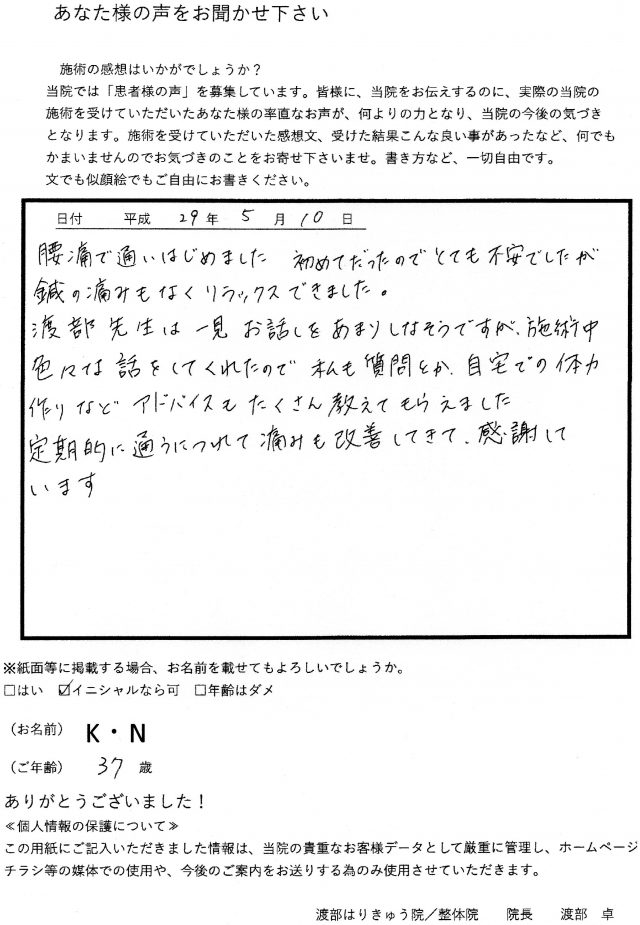 あなた様の声をお聞かせ下さい
施術の感想はいかがでしょうか？
当院では「患者様の声」を募集しています。皆様に、当院をお伝えするのに、実際の当院の
施術を受けていただいたあなた様の率直なお声が、何よりの力となり、当院の今後の気づき
となります。施術を受けていただいた感想文、受けた結果こんな良い事があったなど、何でも
かまいませんのでお気づきのことをお寄せ下さいませ。書き方など、一切自由です。
文でも似顔絵でもご自由にお書きください。
日付 平成 29 年 5 月 10 日
腰痛で通いはじめました 初めてだったのでとても不安でしたが
鍼の痛みもなくリラックスできました。
渡部先生は一見お話しをあまりしなそうですが、施術中
色々な話をしてくれたので私も質問とか、自宅での体力
作りなどアドバイスもたくさん教えてもらえました
定期的に通うにつれて痛みも改善してきて、感謝して
います
※紙面等に掲載する場合、お名前を載せてもよろしいでしょうか。
□はい ☑イニシャルなら可 □年齢はダメ
（お名前） K・N
（ご年齢） 37 歳
ありがとうございました！
≪個人情報の保護について≫
この用紙にご記入いただきました情報は、当院の貴重なお客様データとして厳重に管理し、ホームページ
チラシ等の媒体での使用や、今後のご案内をお送りする為のみ使用させていただきます。
渡部はりきゅう院／整体院 院長 渡部 卓